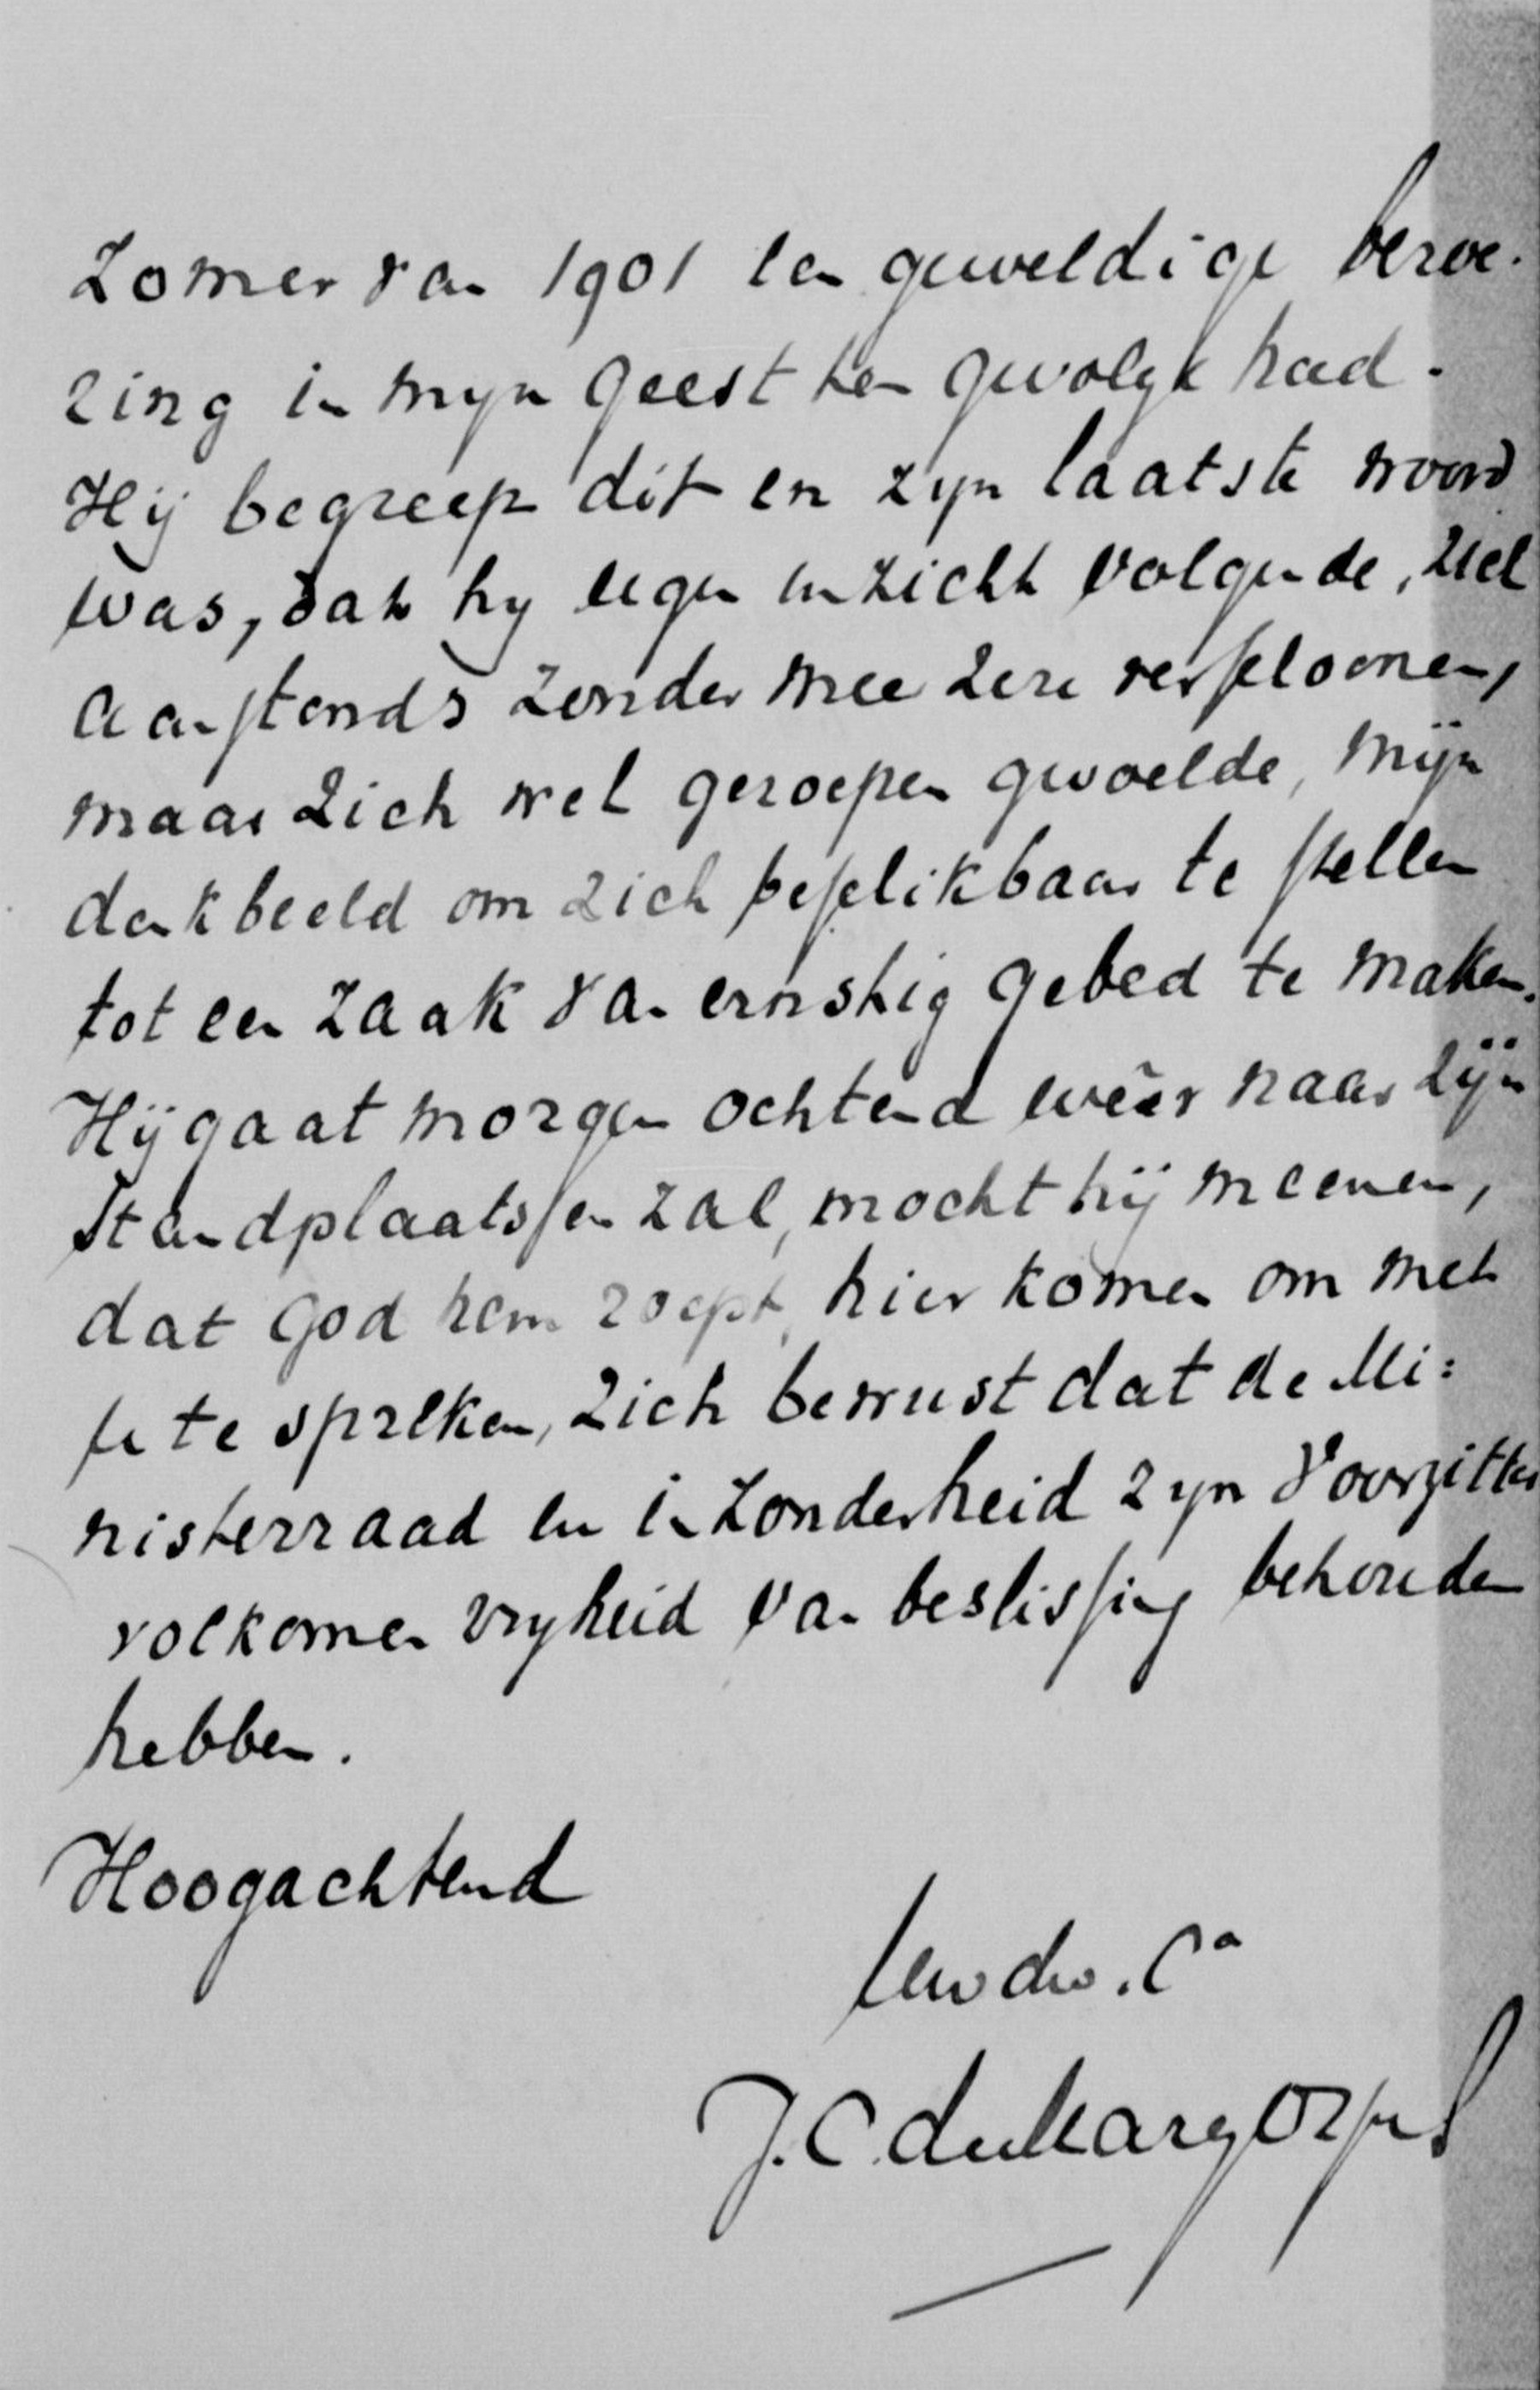 Zomer van 1901 een geweldige beroe-
ring in mijn geest ten gevolge had.
Hij begreep dit en zijn laatste woord
was, dat hij eigen inzicht volgende, ziet
aanstonds zonder meer zere
maar zich wel geroepen gevoelde, mijn
denkbeeld om zich beschikbaar te stellen
tot een zaak van ernstig gebed te maken.
Hij gaat morgen ochtend weêr naar zijn
Standplaats en zal, mocht hij meenen,
dat God hem roept, hier komen om met
U te spreken, zich bewust dat de Mi=
nisterraad en inzonderheid zijn Voorzitter
volkomen vrijheid van beslissing behouden
hebben.
Hoogachtend
Uw dw. Cª
J. C. de Marez Oyens